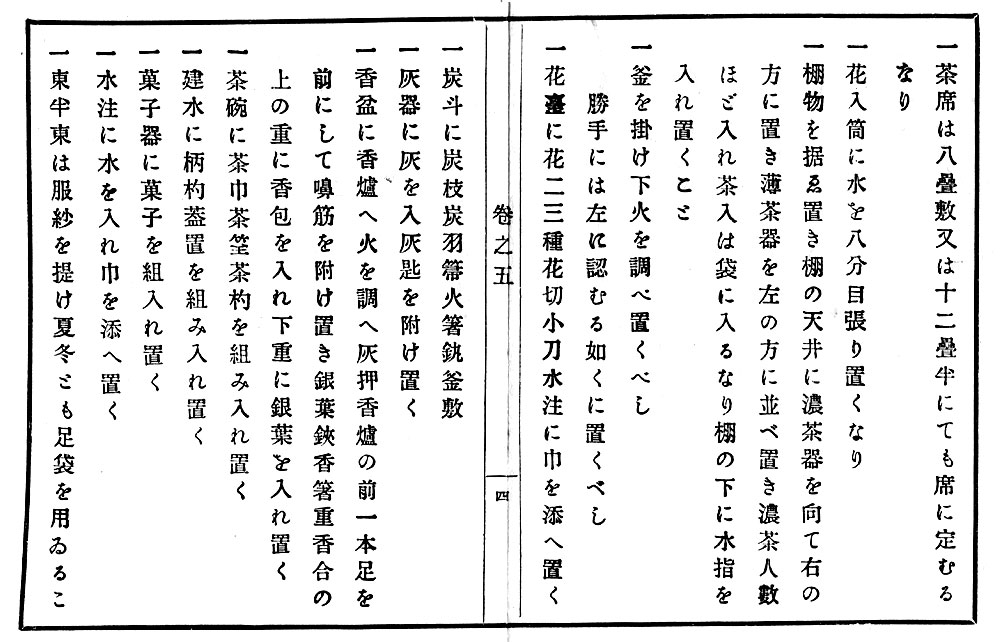 一茶席は八疊敷又は十二疊半にても席に定むる
なり
一花入筒に水を八分目張り置くなり
一棚物を据ゑ置き棚の天井に濃茶器を向て右の
方に置き薄茶器を左の方に並べ置き濃茶人數
ほど入れ茶入は袋に入るなり棚の下に水指を
入れ置くこと
一釜を掛け下火を調べ置くべし
勝手には左に認むる如くに置くべし
一花臺に花二三種花切小刀水注に巾を添へ置く
卷之五
四
一炭斗に炭枝炭羽箒火箸釻釜敷
一灰器に灰を入灰匙を附け置く
一香盆に香爐へ火を調へ灰押香爐の前一本足を
前にして嗅筋を附け置き銀葉鋏香箸重香合の
上の重に香包を入れ下重に銀葉を入れ置く
一茶碗に茶巾茶筌茶杓を組み入れ置く
一建水に柄杓蓋置を組み入れ置く
一菓子器に菓子を組入れ置く
一水注に水を入れ巾を添へ置く
一東半東は服紗を提け夏冬とも足袋を用ゐるこ